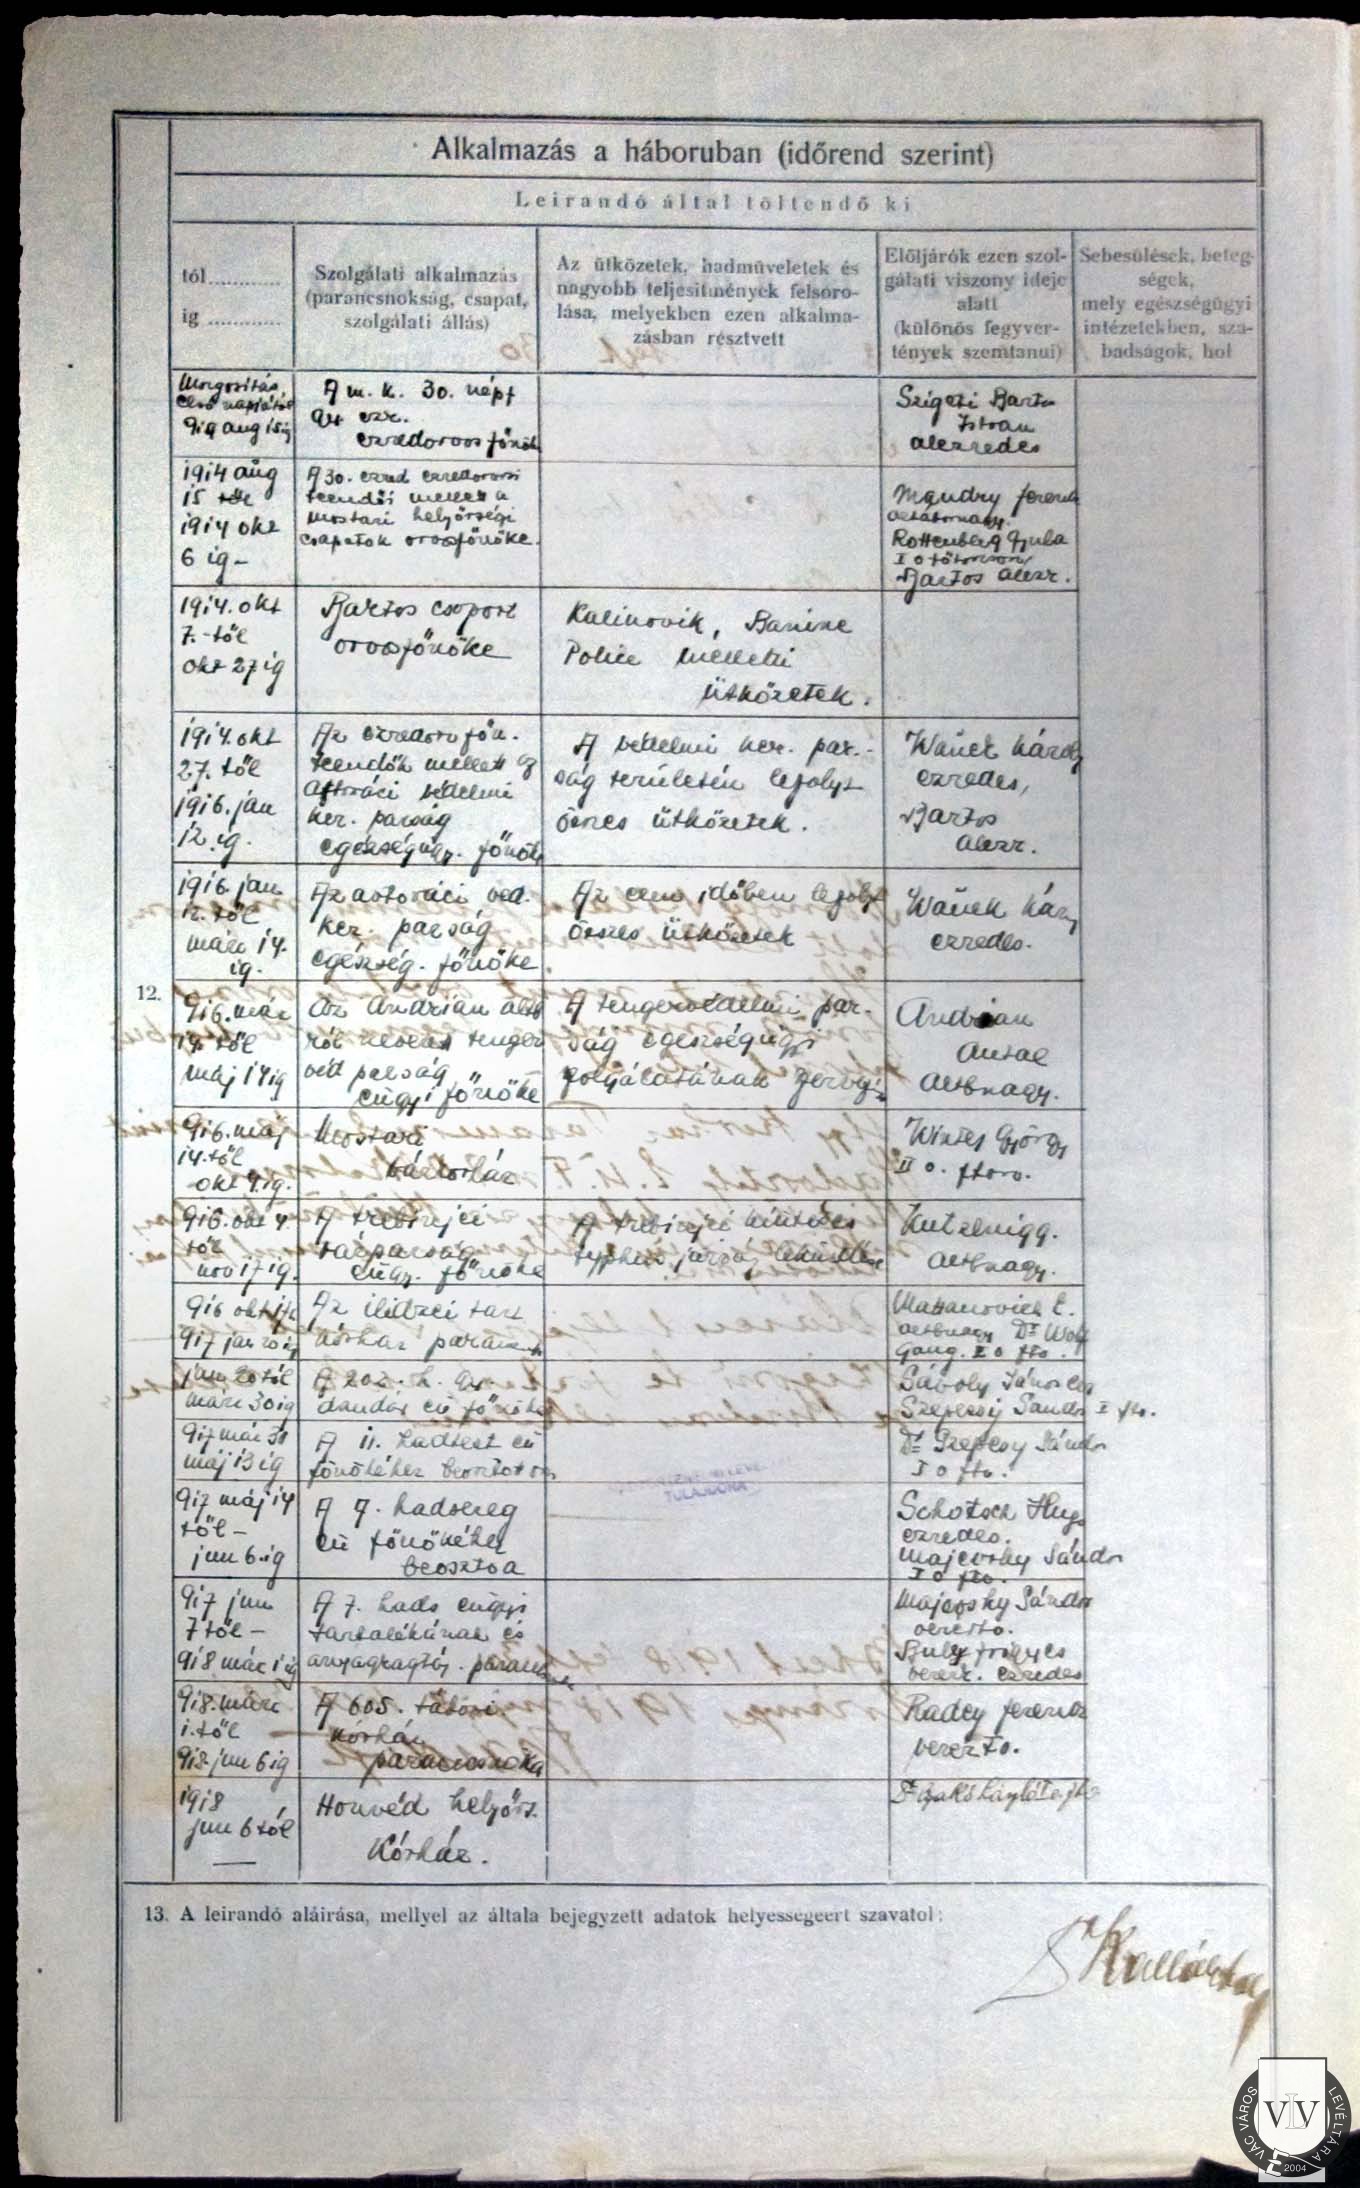 Alkalmazás a háboruban (időrend szerint)
Leirandó által töltendő ki
tól............
ig ............
Szolgálati alkalmazás
(parancsnokság, csapat,
szolgálati állás)
Az ütközetek, hadműveletek és
nagyobb teljesitmények felsoro-
lása, melyekben ezen alkalma-
zásban résztvett
Előljárók ezen szol-
gálati viszony ideje
alatt
(különös fegyver-
tények szemtanui)
Sebesülések, beteg-
ségek,
mely egészségügyi
intézetekben, sza-
badságok, hol
12.
Mozgositás
első napjától
914 aug 15ig
A m. k. 30. népf
gy. ezr.
ezredorvosfőnök
Szigeti Bartos
István
alezredes
1914 aug
15 től
1914 okt
6 ig-
A 30. ezred ezredorvosi
teendői mellett a
mostari helyőrségi
csapatok orvosfőnöke.
Mandry ferenc
altábornagy.
Rottenberg Gyula
I o főtörzsorv.
Bartos alezr.
1914. okt
7.-től
okt 27 ig
Bartos csoport
orvosfőnöke
Kalinovik,
Police melletti
ütközetek.
1914. okt
27. től
1916. jan
12. ig.
Az ezredorv. főn.
teendők mellett az
védelmi
ker. parság
egészségügy. főnöke
A védelmi ker. par.-
ság területén lefolyt
összes ütközetek.
Wanek károly
ezredes,
Bartos
alezr.
1916. jan
12. től
márc 14.
ig.
Az astováci véd.
ker. parság
egészség. főnöke
Az ezen időben lefolyt
összes ütközetek
Wanek Károly
ezredes.
916. már
14. től
máj 14 ig
Az Andrian altb
ról nevezett tenger
véd parság
eügyi főnöke
A tengervédelmi par.-
ság egészségügyi
szolgálatának
Andrian
Antal
altbnagy.
916. máj
14. től
okt 4. ig.
Mostari
kórház
György
II o. ftorv.
916. okt 4.
től
nov 17 ig.
A trebinjei
várparság
eügy. főnöke
A trebinjei
typhus járvány leküzdése
Kutzelnigg.
altbnagy.
917 jan 20 ig
Az ilidzei tart
kórház parancsn.
altbnagy Dr Wolf
Gang. I o fto.
jan 20 tól
márc 30 ig
A 202. h. gy.
dandár eü főnöke
Sáfoly János ezr
Szepessy Sándor I fto.
917 már 31
máj 13 ig
A 11. hadtest eü
főnökéhez beosztott
Dr Szepessy Sándor
I o fto.
TULAJDONA
917 máj 14
től -
jun 6. ig
A 7. hadsereg
eü főnökéhez
beosztva
Schotsch Hugo
ezredes.
Majevszky Sándor
I o fto.
917 jun
7 től -
918 márc 1 ig
A 7. hads eügyi
tartalékának és
anyagraktár. parancsnoka
Majovszky Sándor
vezérto.
frigyes
vezér. ezredes
918. márc
1. től
918. jun 6 ig
A 605. tábori
kórház
parancsnoka
Radey ferenc
vezérto.
1918
jun 6 tól
Honvéd helyőrs.
Kórház.
13. A leirandó aláirása, mellyel az általa bejegyzett adatok helyességeért szavatol:
VÁC VÁROS LEVÉLTÁRA
VLV
2004